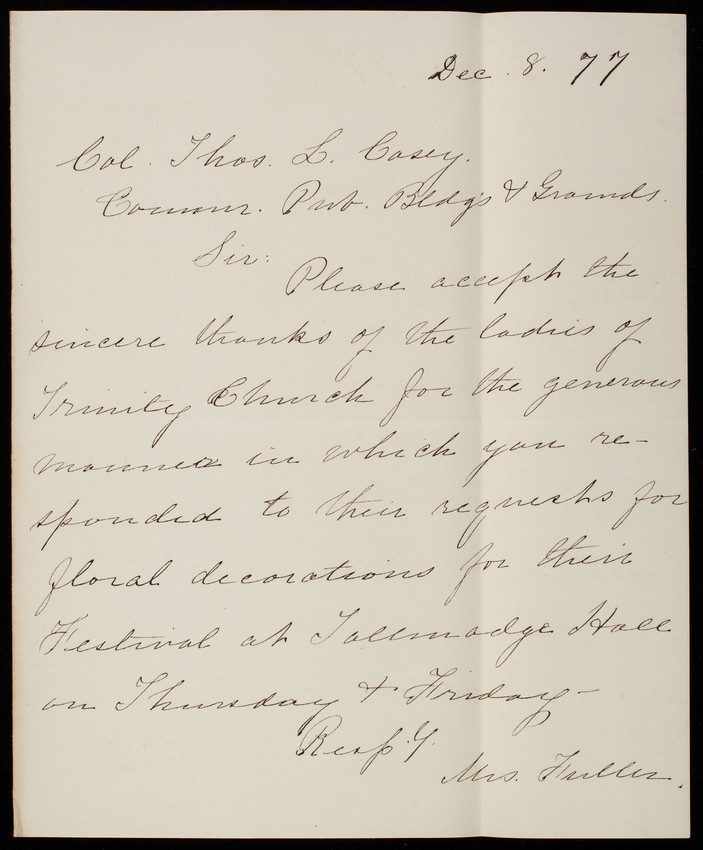 Dec. 8. 77
Col. Thos. L. Casey.
Commr. Pub. Bldgs & Grounds.
Sir:
Please accept the
sincere thanks of the ladies of
Trinity Church for the generous
manner in which you re-
sponded to their requests for
floral decorations for their
Festival at Tallmadge Hall
on Thursday & Friday -
Resp'y.
Mrs. Fuller.